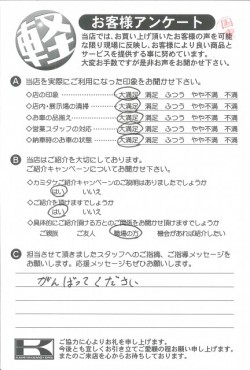 軽
お客様アンケート
当店では、お買い上げ頂いたお客様の声を可能
な限り現場に反映し、お客様により良い商品と
サービスを提供する事に努めています。
大変お手数ですが是非お声をお聞かせ下さい。
A 当店を実際にご利用になった印象をお聞かせ下さい。
◇店の印象 大満足 満足 ふつう やや不満 不満
◇店内・展示場の清掃 大満足 満足 ふつう やや不満 不満
◇お車の品揃え 大満足 満足 ふつう やや不満 不満
◇営業スタッフの対応 大満足 満足 ふつう やや不満 不満
◇納車時のお車の状態 大満足 満足 ふつう やや不満 不満
B 当店はご紹介を大切にしております。
ご紹介キャンペーンについてお聞かせ下さい
◇カミタケご紹介キャンペーンのご説明はありましたでしょうか
はい いいえ
◇ご紹介を頂けますでしょうか
はい いいえ
◇具体的にご紹介頂ける方とのご関係をお聞かせ頂けますでしょうか
ご親族 ご友人 職場の方 機会があれば紹介したい
C 担当させて頂きましたスタッフへのご指摘、ご指導メッセージを
お願いします。応援メッセージもぜひお願いします。
がんばってください
K
ご協力に心よりお礼を申し上げます。
今後とも宜しくお引き立てご愛顧の程お願い申し上げます。
またのご来店を心からお待ちしております。